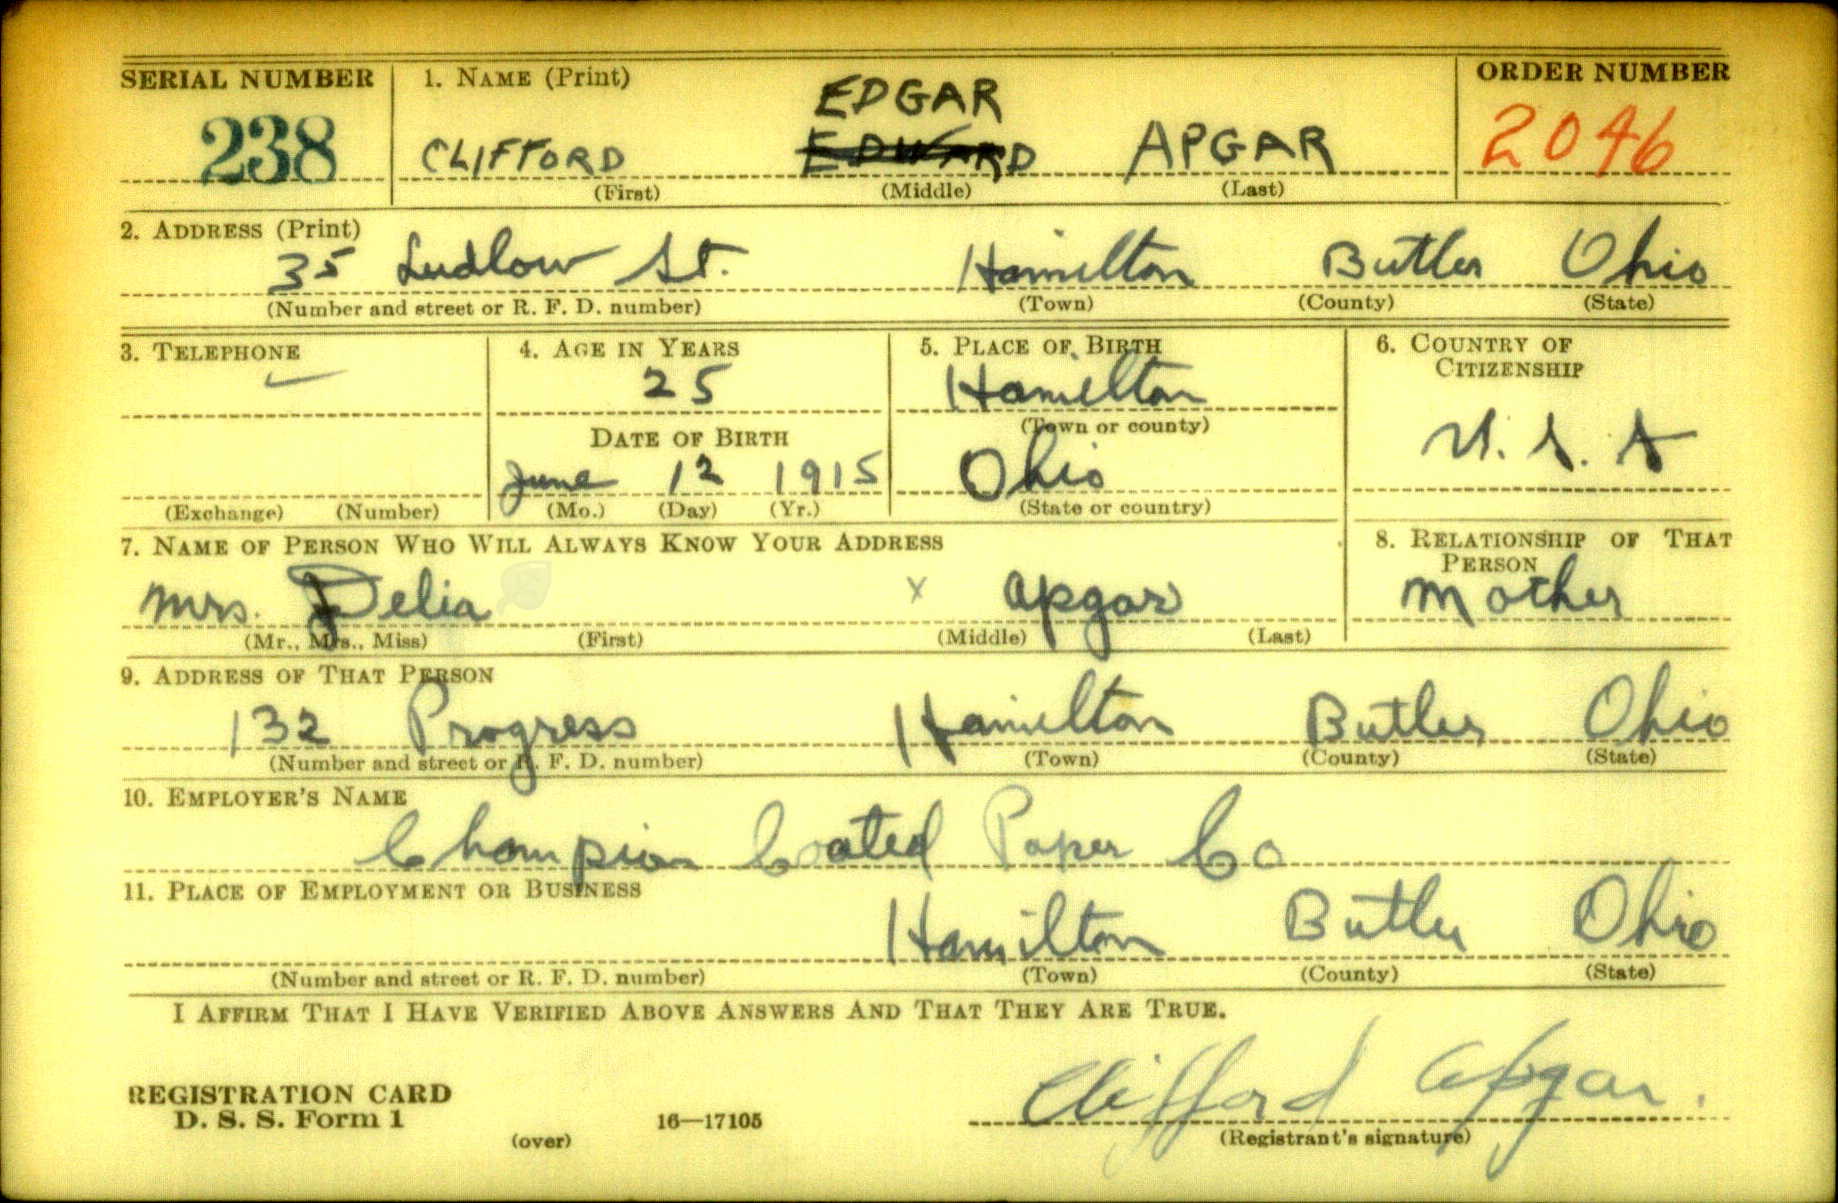 SERIAL NUMBER 1. NAME (Print) ORDER NUMBER
EDGAR
238 CLIFFORD EDWARD APGAR 2046
(First) (Middle) (Last)
2. ADDRESS (Print)
35 Ludlow St. Hamilton Butler Ohio
(Number and street or R. F. D. number) (Town) (County) (State)
3. TELEPHONE 4. AGE IN YEARS 5. PLACE OF BIRTH 6. COUNTRY OF
CITIZENSHIP
25 Hamilton
(Town or county)
DATE OF BIRTH U. S. A
June 12 1915 Ohio
(Exchange) (Number) (Mo.) (Day) (Yr.) (State or country)
7. NAME OF PERSON WHO WILL ALWAYS KNOW YOUR ADDRESS 8. RELATIONSHIP OF THAT
PERSON
Mrs. Delia x Apgar Mother
(Mr., Mrs., Miss) (First) (Middle) (Last)
9. ADDRESS OF THAT PERSON
132 Progress Hamilton Butler Ohio
(Number and street or R. F. D. number) (Town) (County) (State)
10. EMPLOYER'S NAME
Champion Coated Paper Co
11. PLACE OF EMPLOYMENT OR BUSINESS
Hamilton Butler Ohio
(Number and street or R. F. D. number) (Town) (County) (State)
I AFFIRM THAT I HAVE VERIFIED ABOVE ANSWERS AND THAT THEY ARE TRUE.
REGISTRATION CARD
D. S. S. Form 1 16—17105 Clifford Apgar.
(over) (Registrant's signature)